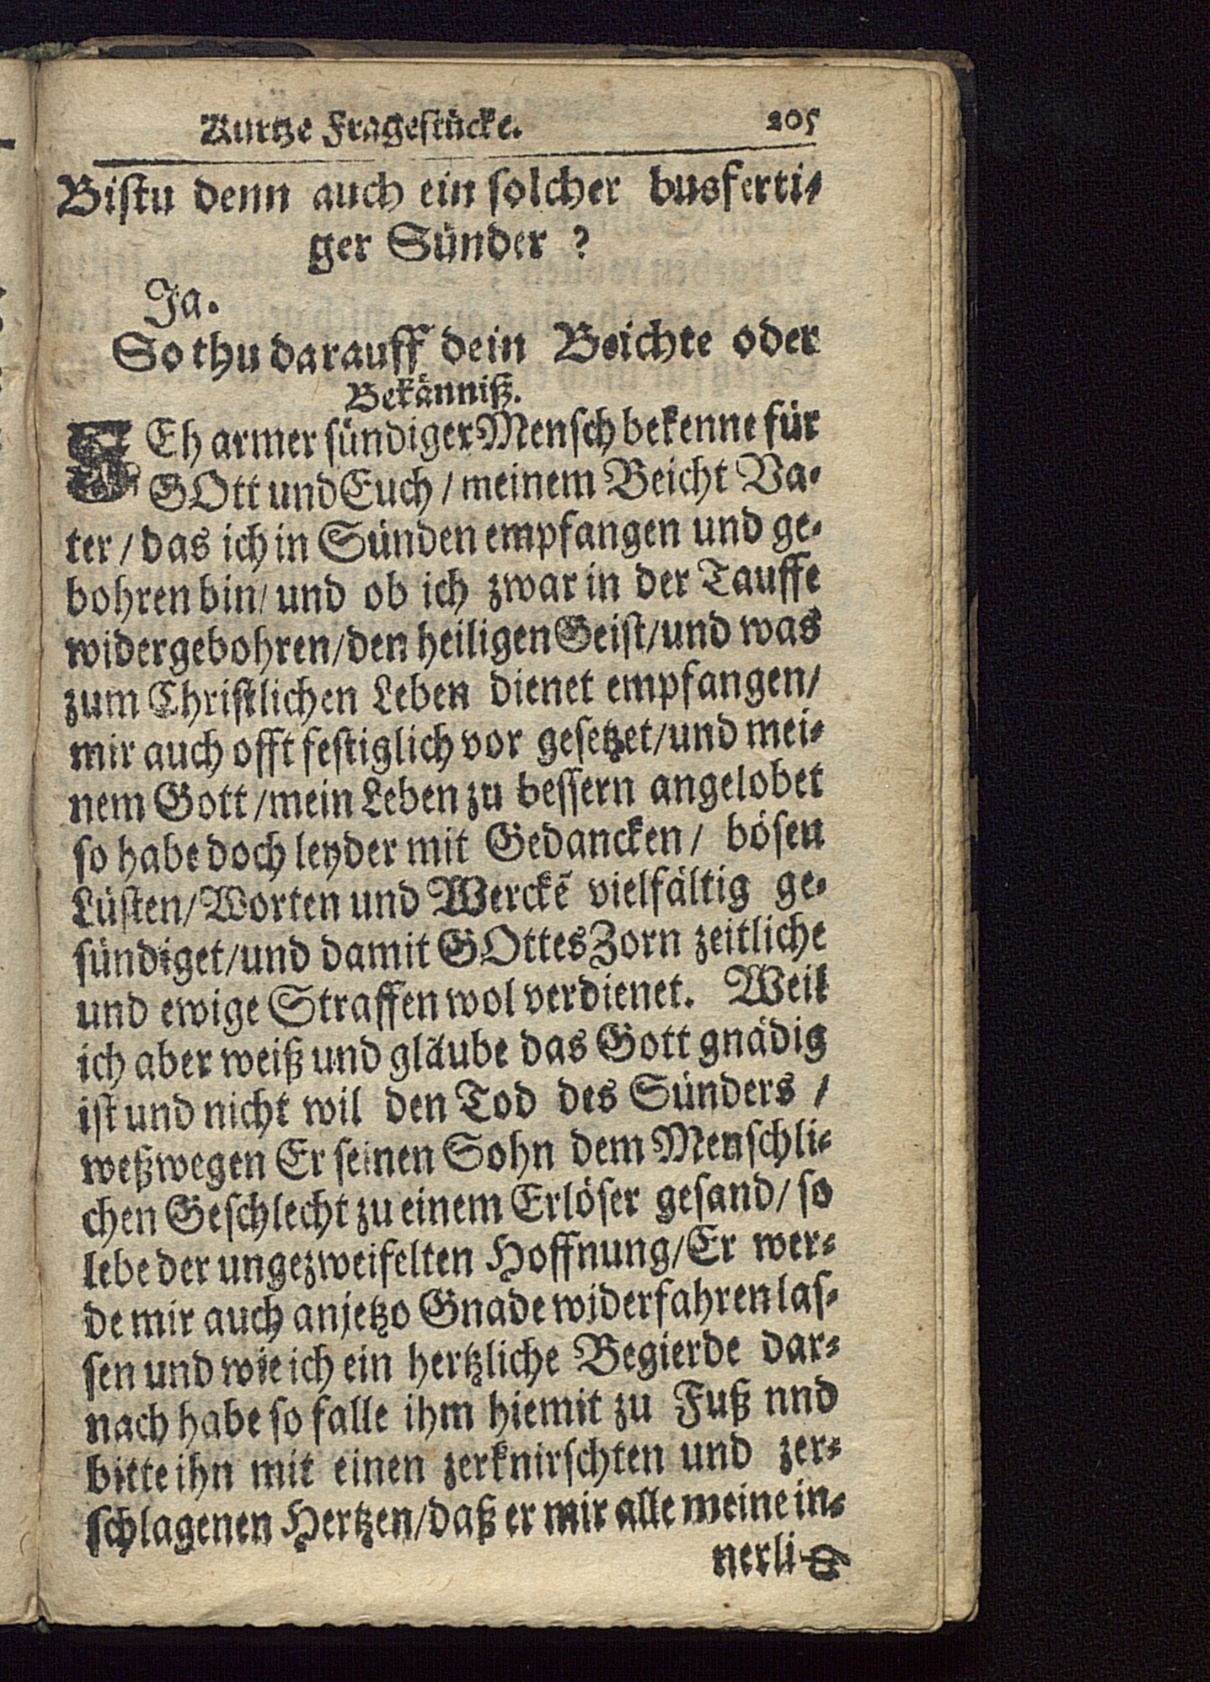 Kurtze Fragestücke. 205
Bistu denn auch ein solcher busferti-
ger Sünder ?
Ja.
So thu darauff dein Beichte oder
Bekänniß.
JEh armer sündiger Mensch bekenne für
GOtt und Euch / meinem Beicht Va-
ter / das ich in Sünden empfangen und ge-
bohren bin / und ob ich zwar in der Tauffe
widergebohren / den heiligen Geist / und was
zum Christlichen Leben dienet empfangen /
mir auch offt festiglich vor gesetzet / und mei-
nem Gott / mein Leben zu bessern angelobet
so habe doch leyder mit Gedancken / bösen
Lüsten / Worten und Werckẽ vielfältig ge-
sündiget / und damit GOttes Zorn zeitliche
und ewige Straffen wol verdienet. Weil
ich aber weiß und gläube das Gott gnädig
ist und nicht wil den Tod des Sünders /
weßwegen Er seinen Sohn dem Menschli-
chen Geschlecht zu einem Erlöser gesand / so
lebe der ungezweifelten Hoffnung / Er wer-
de mir auch anjetzo Gnade widerfahren las-
sen und wie ich ein hertzliche Begierde dar-
nach habe so falle ihm hiemit zu Fuß nnd
bitte ihn mit einen zerknirschten und zer-
schlagenen Hertzen / daß er mir alle meine in-
nerli-